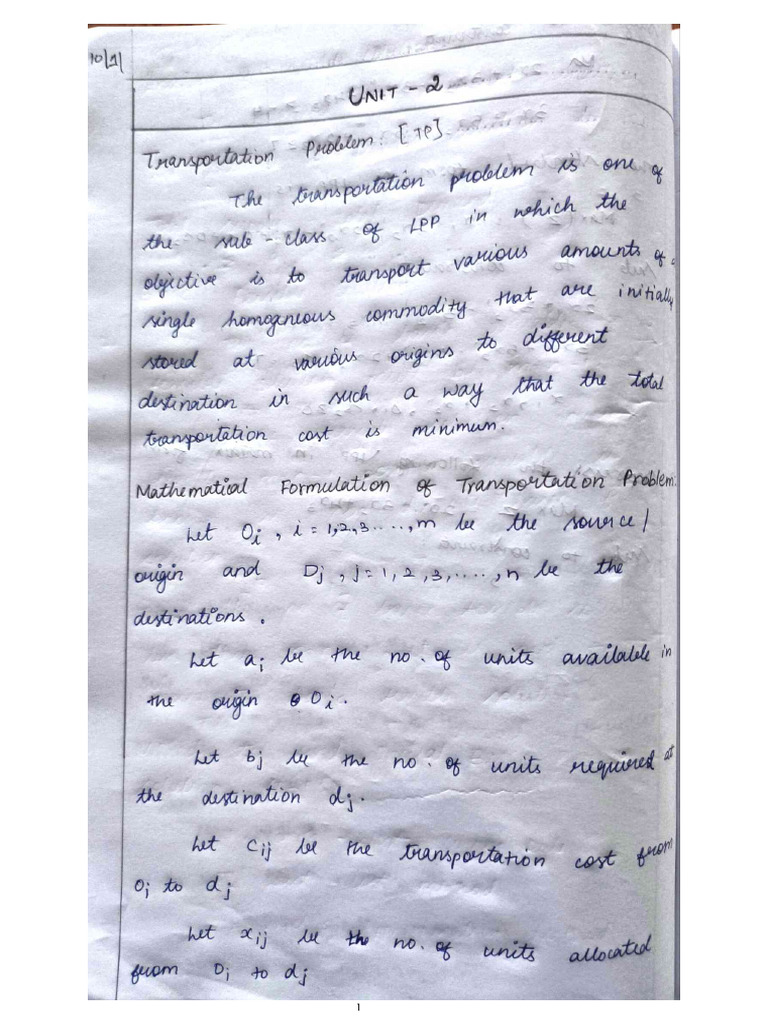 10/1/
UNIT - 2
Transportation Problem: [TP]
The transportation problem is one of
the sub-class of LPP in which the
objective is to transport various amounts of
single homogneous commodity that are initially
stored at various origins to different
destination in such a way that the total
transportation cost is minimum.
Mathematial Formulation of Transportation Problem:
Let Oi, i = 1,2,3....,m be the source/
origin and Dj, j=1,2,3,....,n be the
destinations.
Let ai be the no. of units available in
the origin Oi.
Let bj be the no. of units required at
the destination dj.
Let Cij be the transportation cost from
Oi to dj
Let xij be the no. of units allocated
from Oi to dj
1